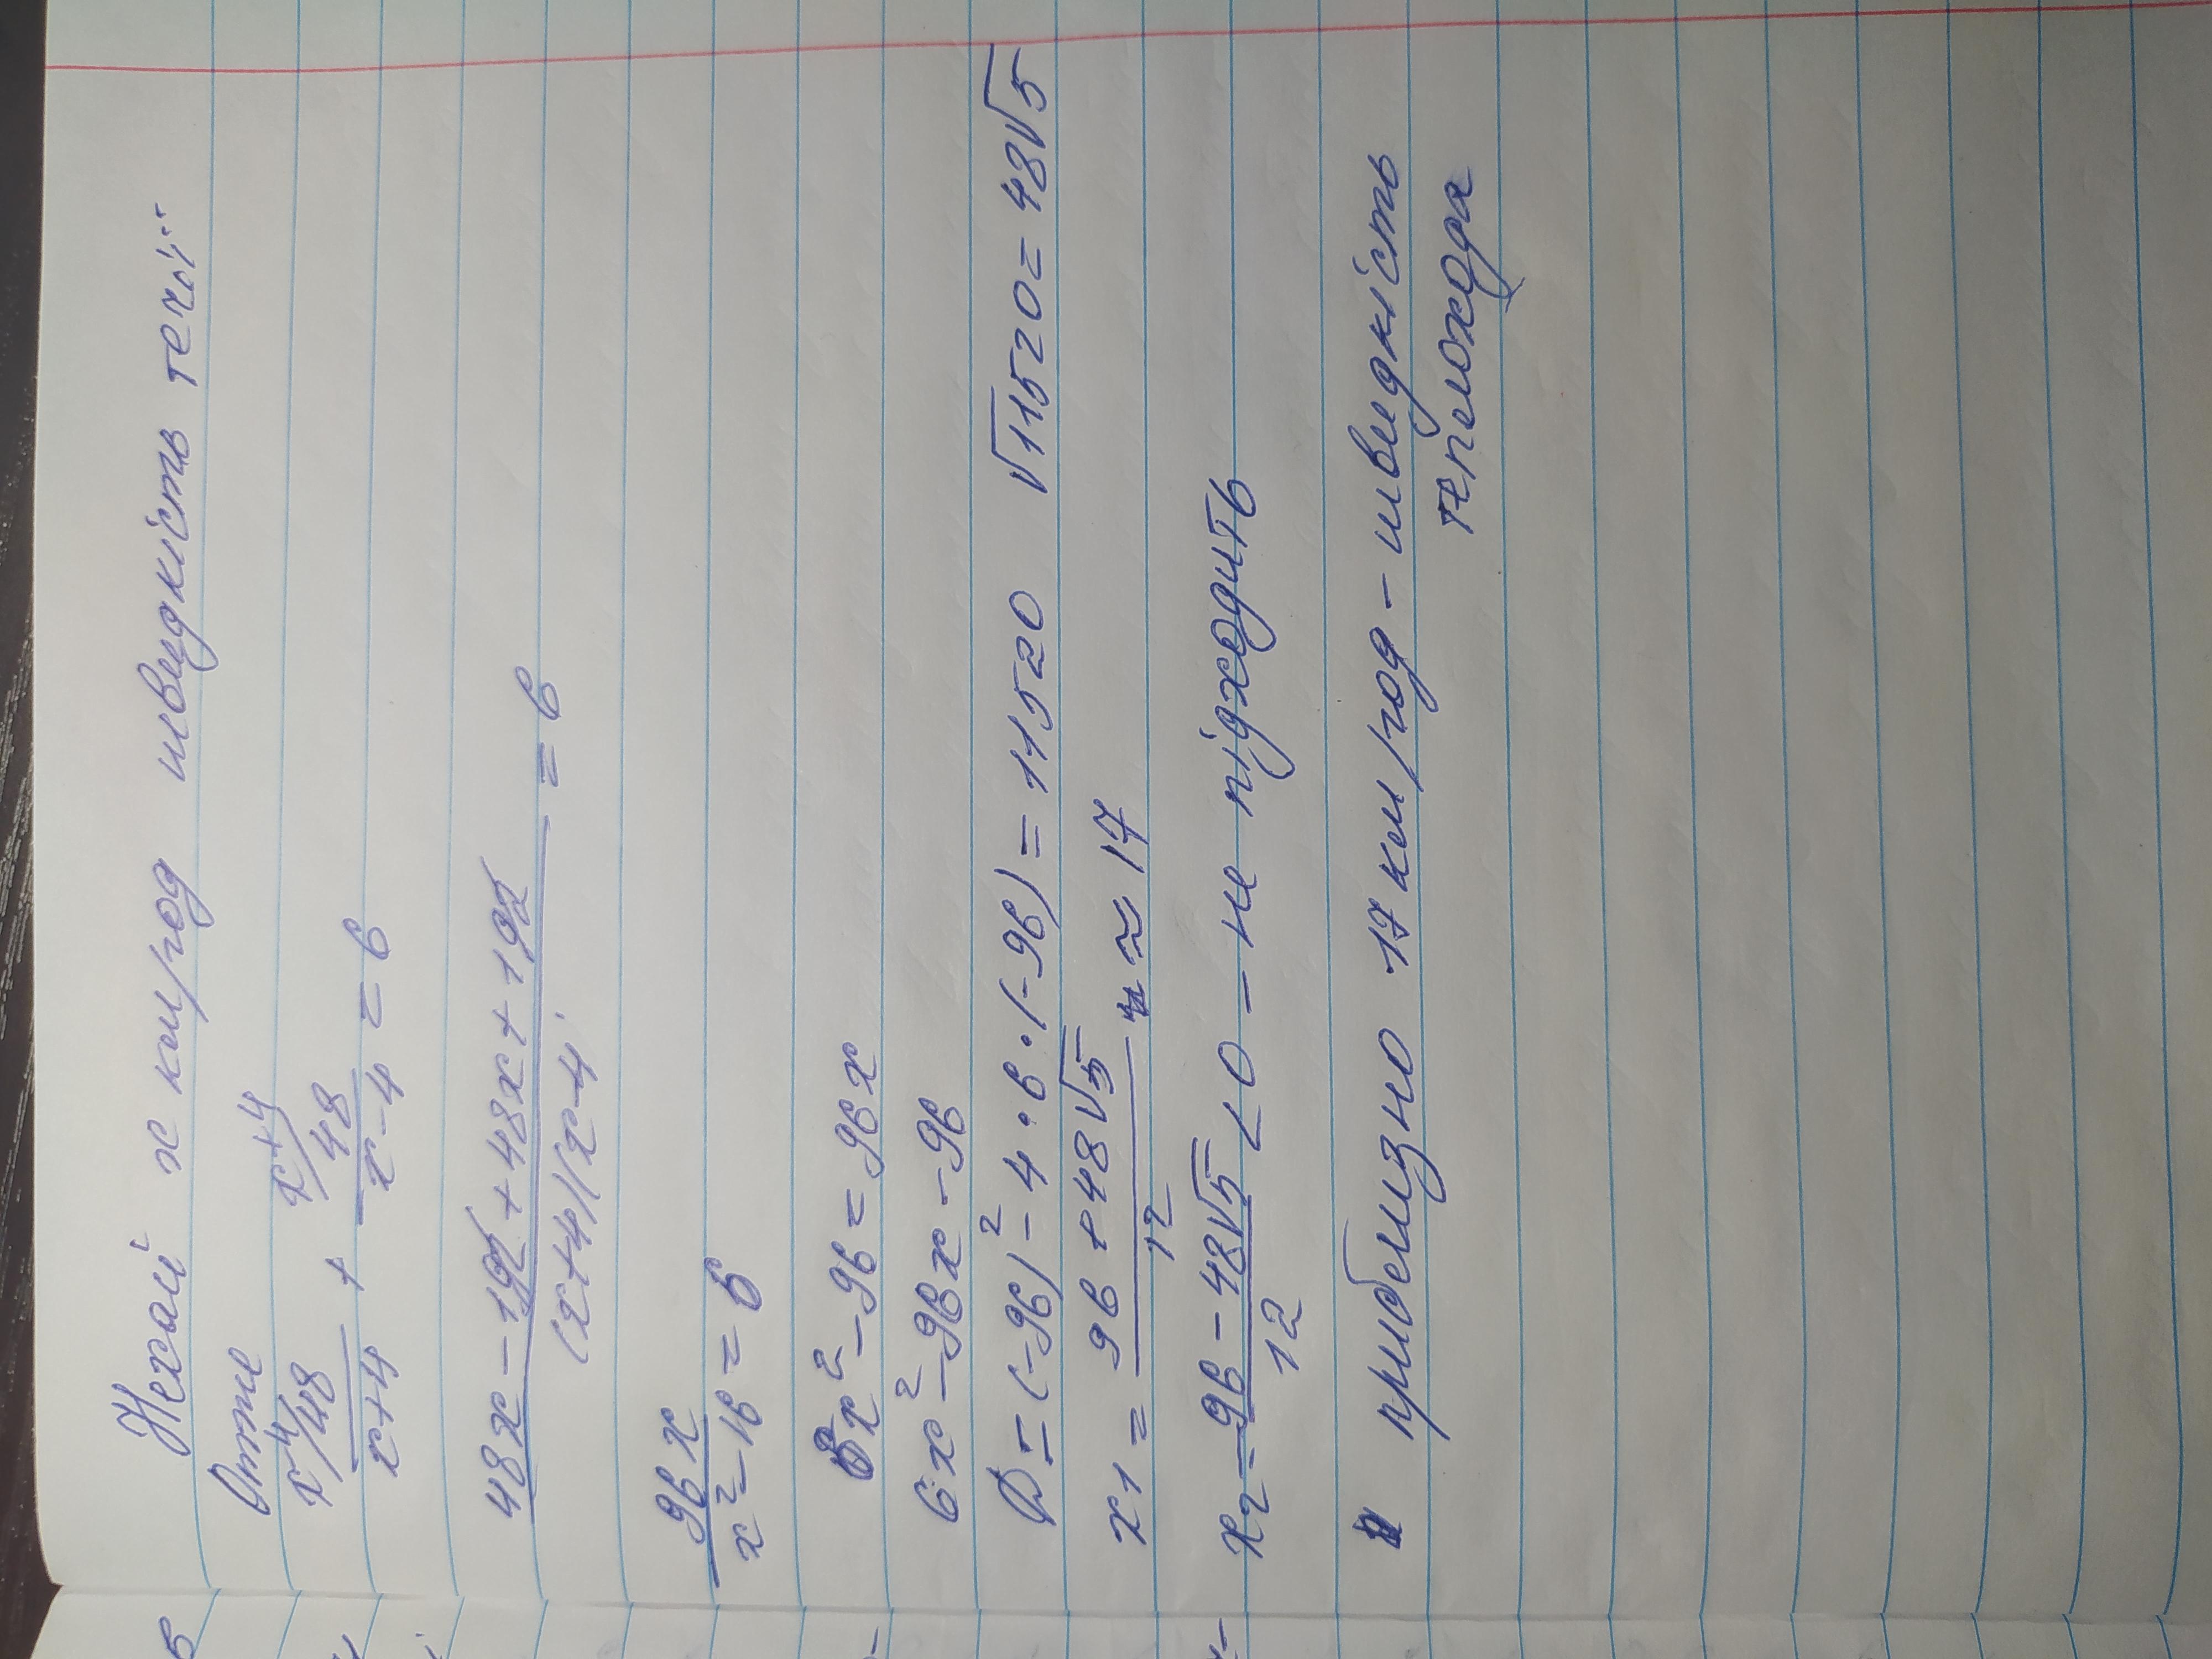 Нехай x км/год швидкість течії
Отже
x-4/48/x+4 + x+4/48/x-4 = 6
48x-192+48x+192/(x+4)(x-4) = 6
96x/x²-16 = 6
6x²-96=96x
6x²-96x-96
D=(-96)²-4·6·(-96)=11520 √11520=48√5
x1 = 96+48√5/12 ≈ 17
x2 = 96-48√5/12 <0 - не підходить
приблизно 17 км/год - швидкість
теплохода